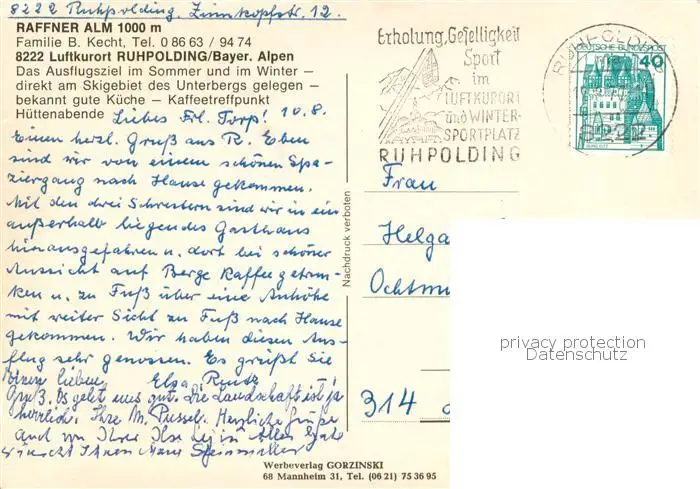 8222 Ruhpolding Zinnkopfstr. 12.
RAFFNER ALM 1000 m
Familie B. Kecht, Tel. 0 86 63 / 94 74
8222 Luftkurort RUHPOLDING/Bayer. Alpen
Das Ausflugsziel im Sommer und im Winter –
direkt am Skigebiet des Unterbergs gelegen –
bekannt gute Küche – Kaffeetreffpunkt
Hüttenabende
Liebes Frl. Torp! 10.8.
Einen herzl. Gruß aus R. Eben
sind wir von einem schönen Spa-
ziergang nach Hause gekommen.
Mit den drei Schwestern sind wir in ein
außerhalb liegendes Gasthaus
hinausgefahren u. dort bei schöner
Aussicht auf Berge Kaffee getrun-
ken u. zu Fuß über eine Anhöhe
mit weiter Sicht zu Fuß nach Hause
gekommen. Wir haben diesen Aus-
flug sehr genossen. Es grüßt Sie
lieben Elsa
Gruß. Es geht uns gut. Die Landschaft ist ja
herrlich. Ihre M. Herzliche Grüße
auch von Ihrer Ilse Alles Gute
wünscht Ihnen
Nachdruck verboten
Werbeverlag GORZINSKI
68 Mannheim 31, Tel. (06 21) 75 36 95
Erholung, Geselligkeit
Sport
im
LUFTKURORT
und WINTER-
SPORTPLATZ
RUHPOLDING
RUHPOLDING
8222
DEUTSCHE BUNDESPOST
40
BURG ELTZ
Frau
Helga
Ochtm
314
privacy protection
Datenschutz